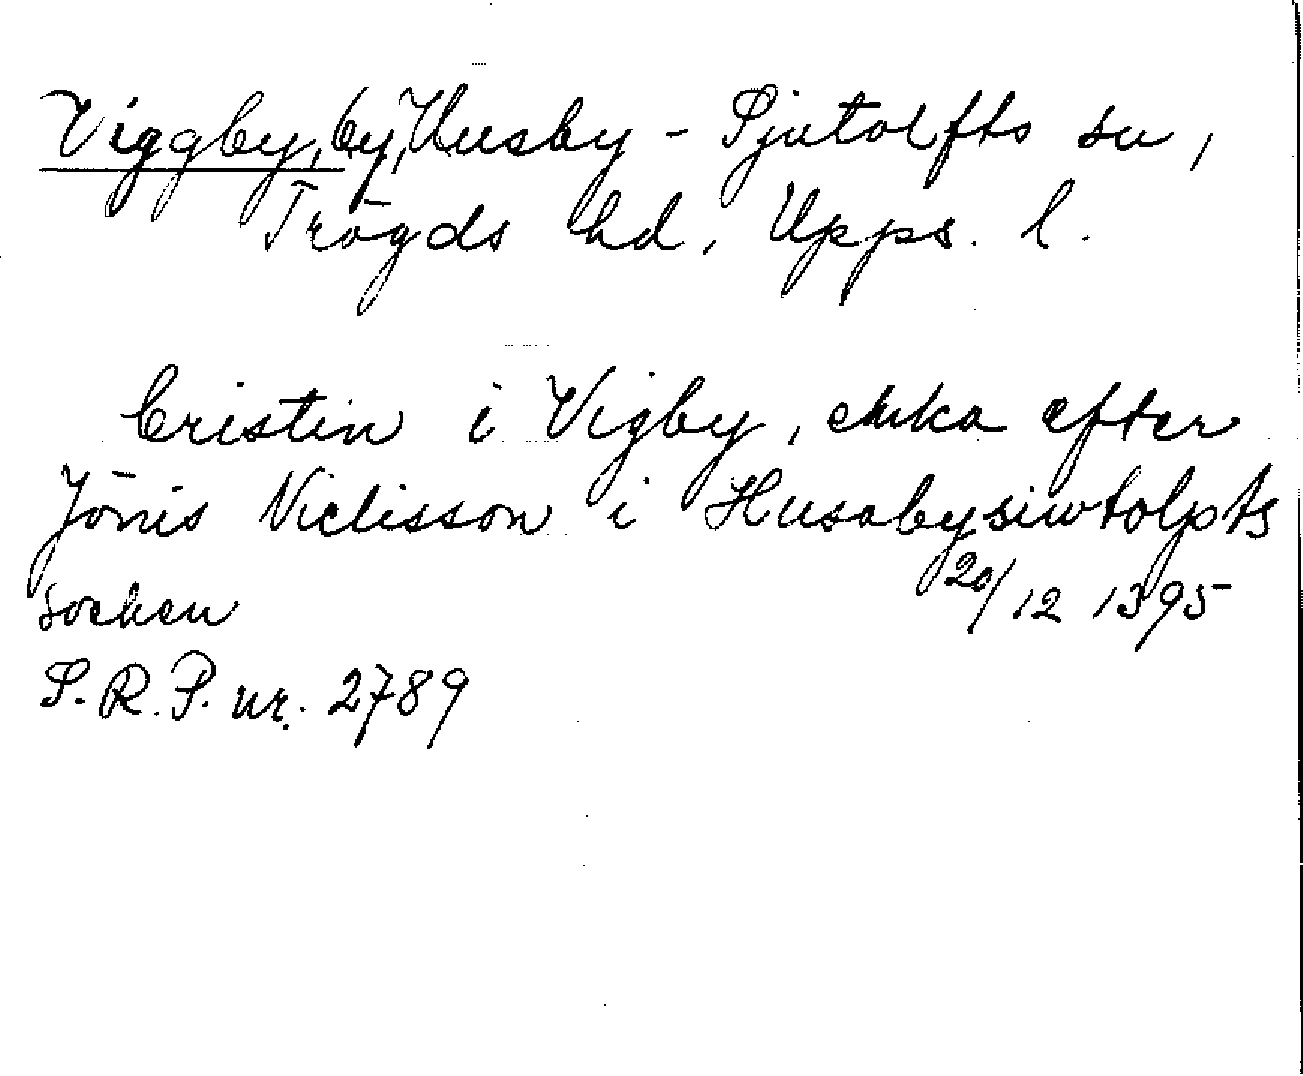 Viggby, by, Husby - Sjutolfts sn,
Trögds hd, Upps. l.
Cristin i Vigby, änka efter
Jönis Niclisson i Husabysiwtolpts
socken 20/12 1395
S.R.P. nr. 2789